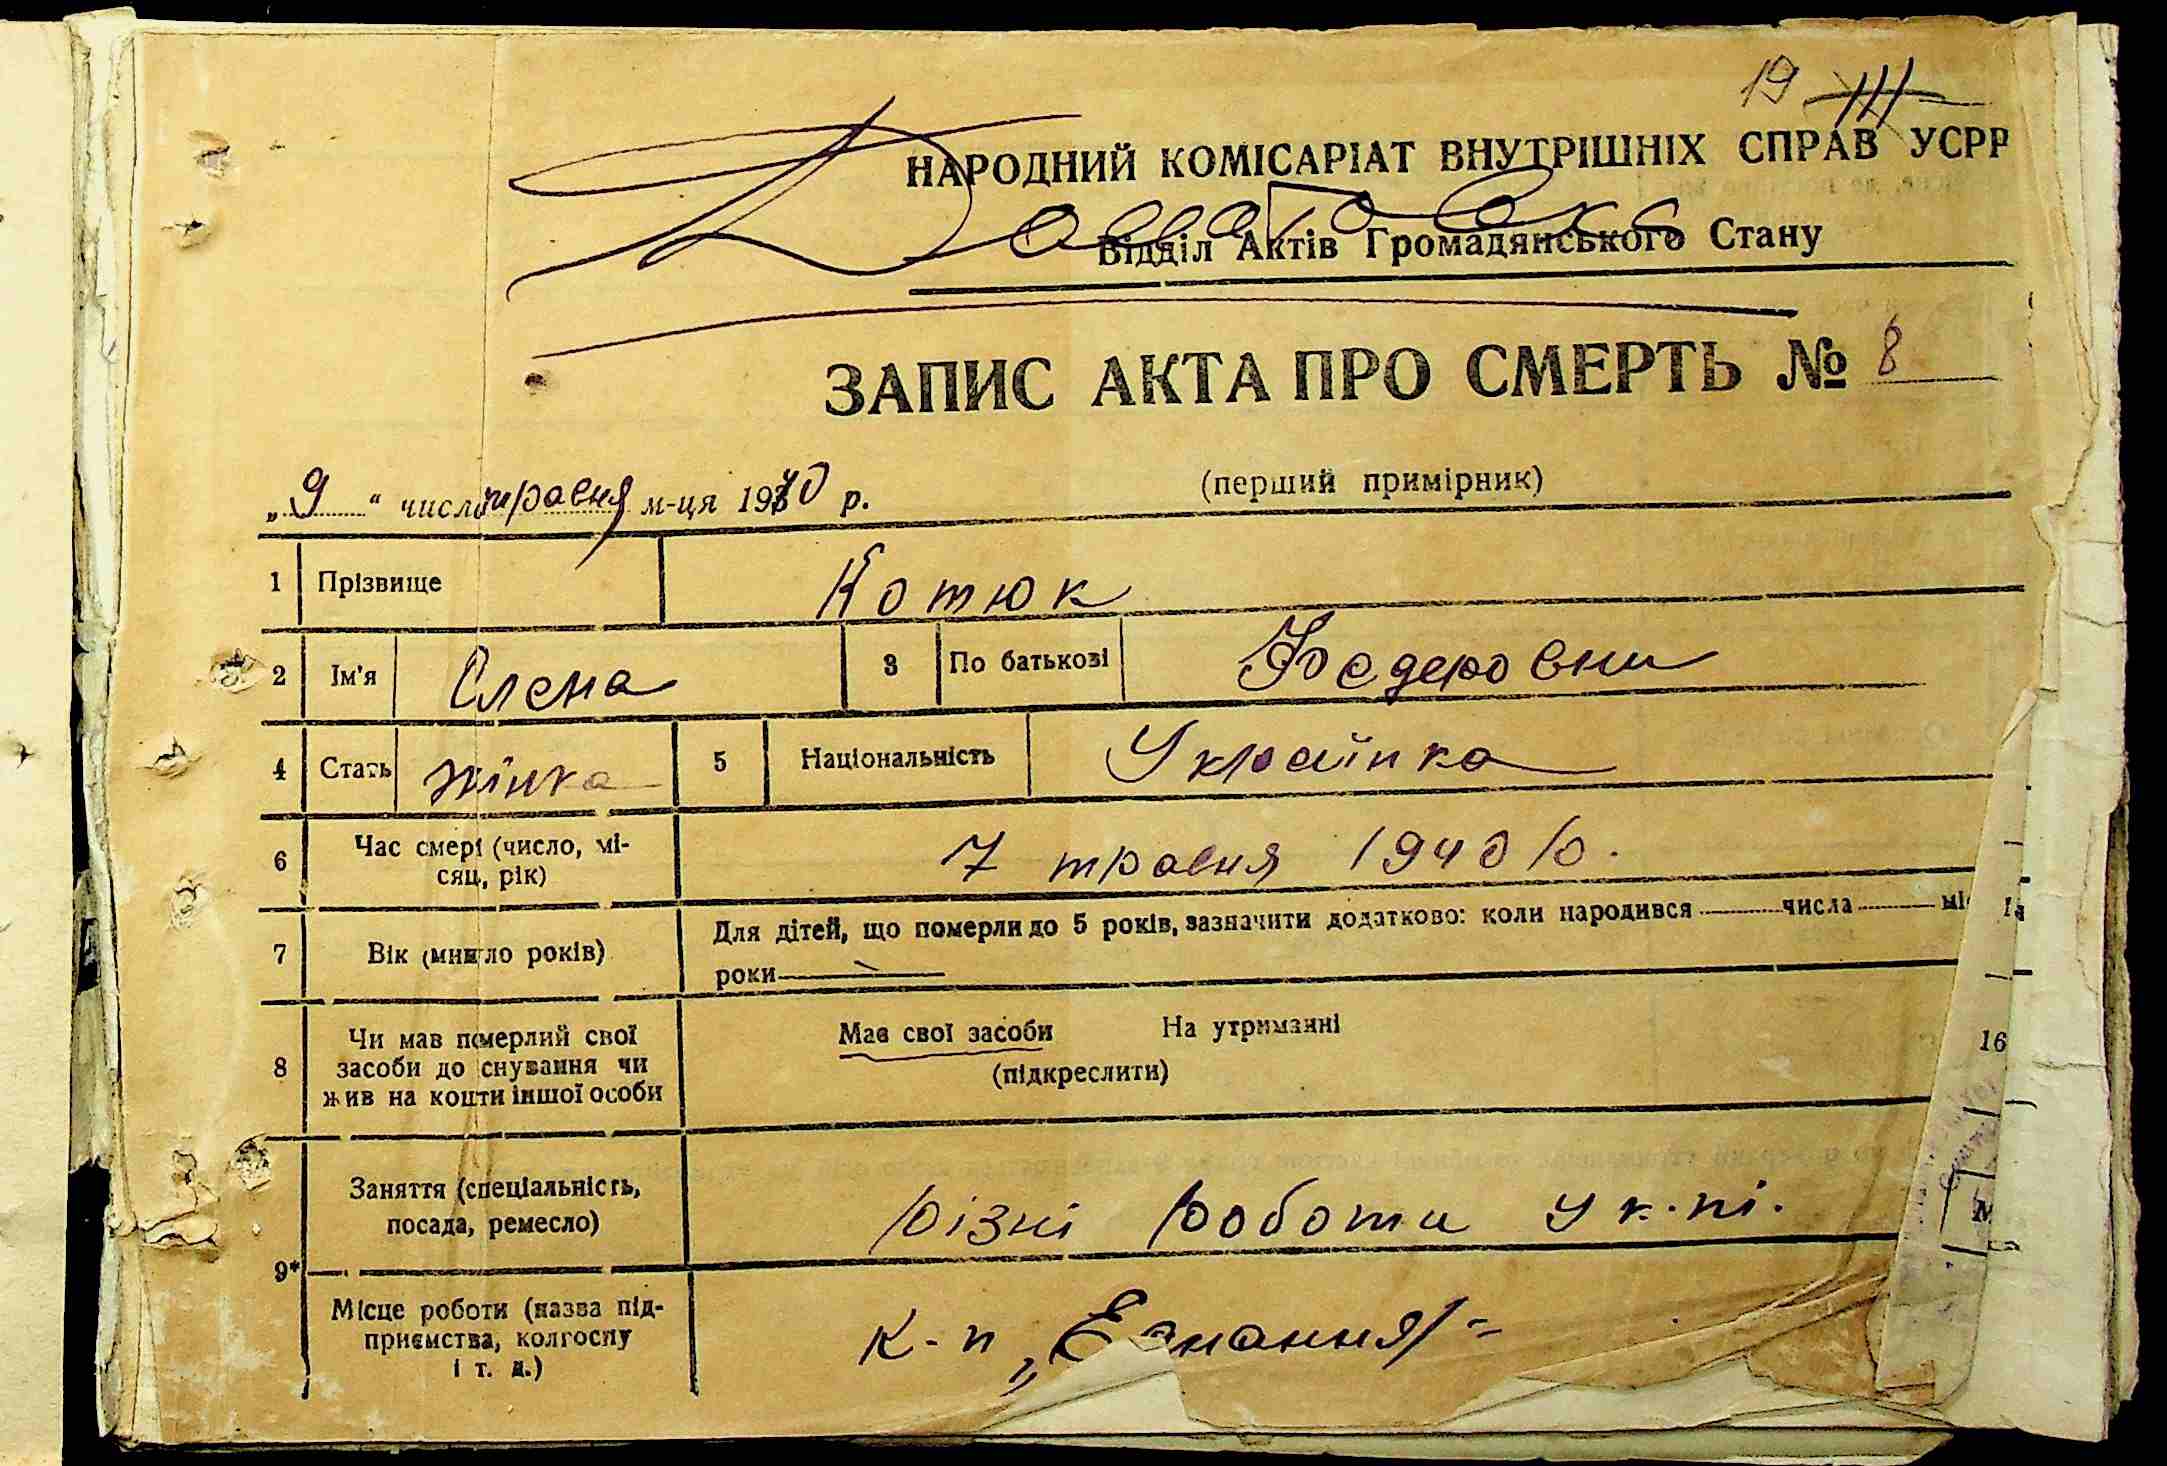 19 III
НАРОДНИЙ КОМІСАРІАТ ВНУТРІШНІХ СПРАВ УСРР
Відділ Актів Громадянського Стану
ЗАПИС АКТА ПРО СМЕРТЬ № 8
„9“ число травня м-ця 1940 р.
(перший примірник)
1 Прізвище Котюк
2 Ім'я Олена 3 По батькові Федеровни
4 Стать жінка 5 Національність Українка
6 Час смері (число, мі-
сяц, рік) 7 травня 1940 р.
7 Вік (минуло років) Для дітей, що померли до 5 років, зазначити додатково: коли народився числа мі
роки
8 Чи мав померлий свої
засоби до снування чи
жив на кошти іншої особи
Має свої засоби На утриманні
(підкреслити)
9* Заняття (спеціальність,
посада, ремесло) різні роботи у к-пі.
Місце роботи (назва під-
приємства, колгоспу
і т. д.) к-п „Єднання"
16